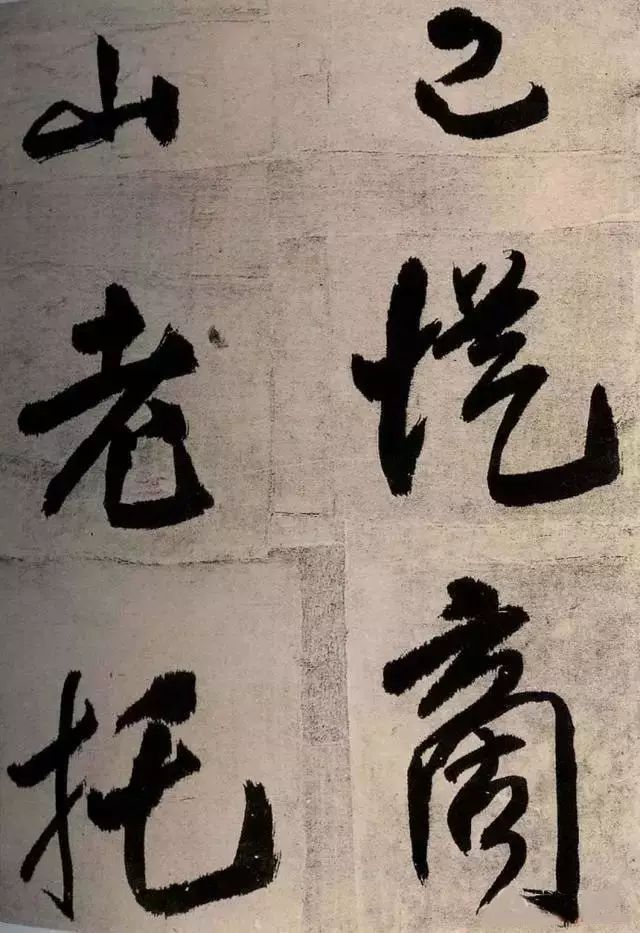 已愜商
山老托